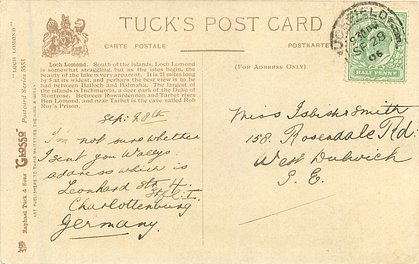 TUCK'S POST CARD
CARTE POSTALE
POSTKARTE
(FOR ADDRESS ONLY)
Loch Lomond. South of the islands, Loch Lomond
is somewhat straggling, but as the isles begin, the
beauty of the lake is very apparent. It is 21 miles long
by 5 at its widest, and perhaps the best view is to be
had between Balloch and Balmaha. The largest of
the islands is Inchmurrin, a deer park of the Duke of
Montrose. Between Rowardennan and Tarbet rises
Ben Lomond, and near Tarbet is the cave called Rob
Roy's Prison.
Sep: 28th
I'm not sure whether
I sent you Wally's
address which is
Leonhard Str 4.
Charlottenburg
Germany.
Miss Isbister Smith
158. Rosendale Rd.
West Dulwich
S. E.
SP 28
06
HALF PENNY
"LOCH LOMOND"
Postcard Series
Raphael Tuck & Sons' "GLOSSO"
ART PUBLISHERS TO THEIR MAJESTIES THE KING & QUEEN